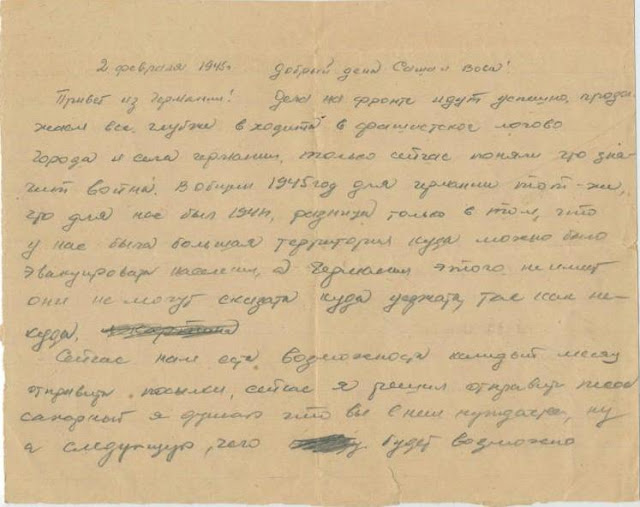 2 февраля 1945г Добрый день Саша и Вова!
Привет из Германии! Дела на фронте идут успешно, продол
жаем все глубже входить в фашистское логово
Города и села Германии, только сейчас поняли что зна-
чит война. В общем 1945 год для Германии тот-же,
что для нас был 1941, разница только в том, что
у нас была большая территория куда можно было
эвакуировать население, а Германия этого не имеет
они не могут сказать куда уезжать, так как не-
куда,
Сейчас нам есть возможность каждый месяц
отправить посылки, сейчас я решил отправить песок
сахарный я думаю что вы в нем нуждаетесь, ну
а следующую, чего будет возможно